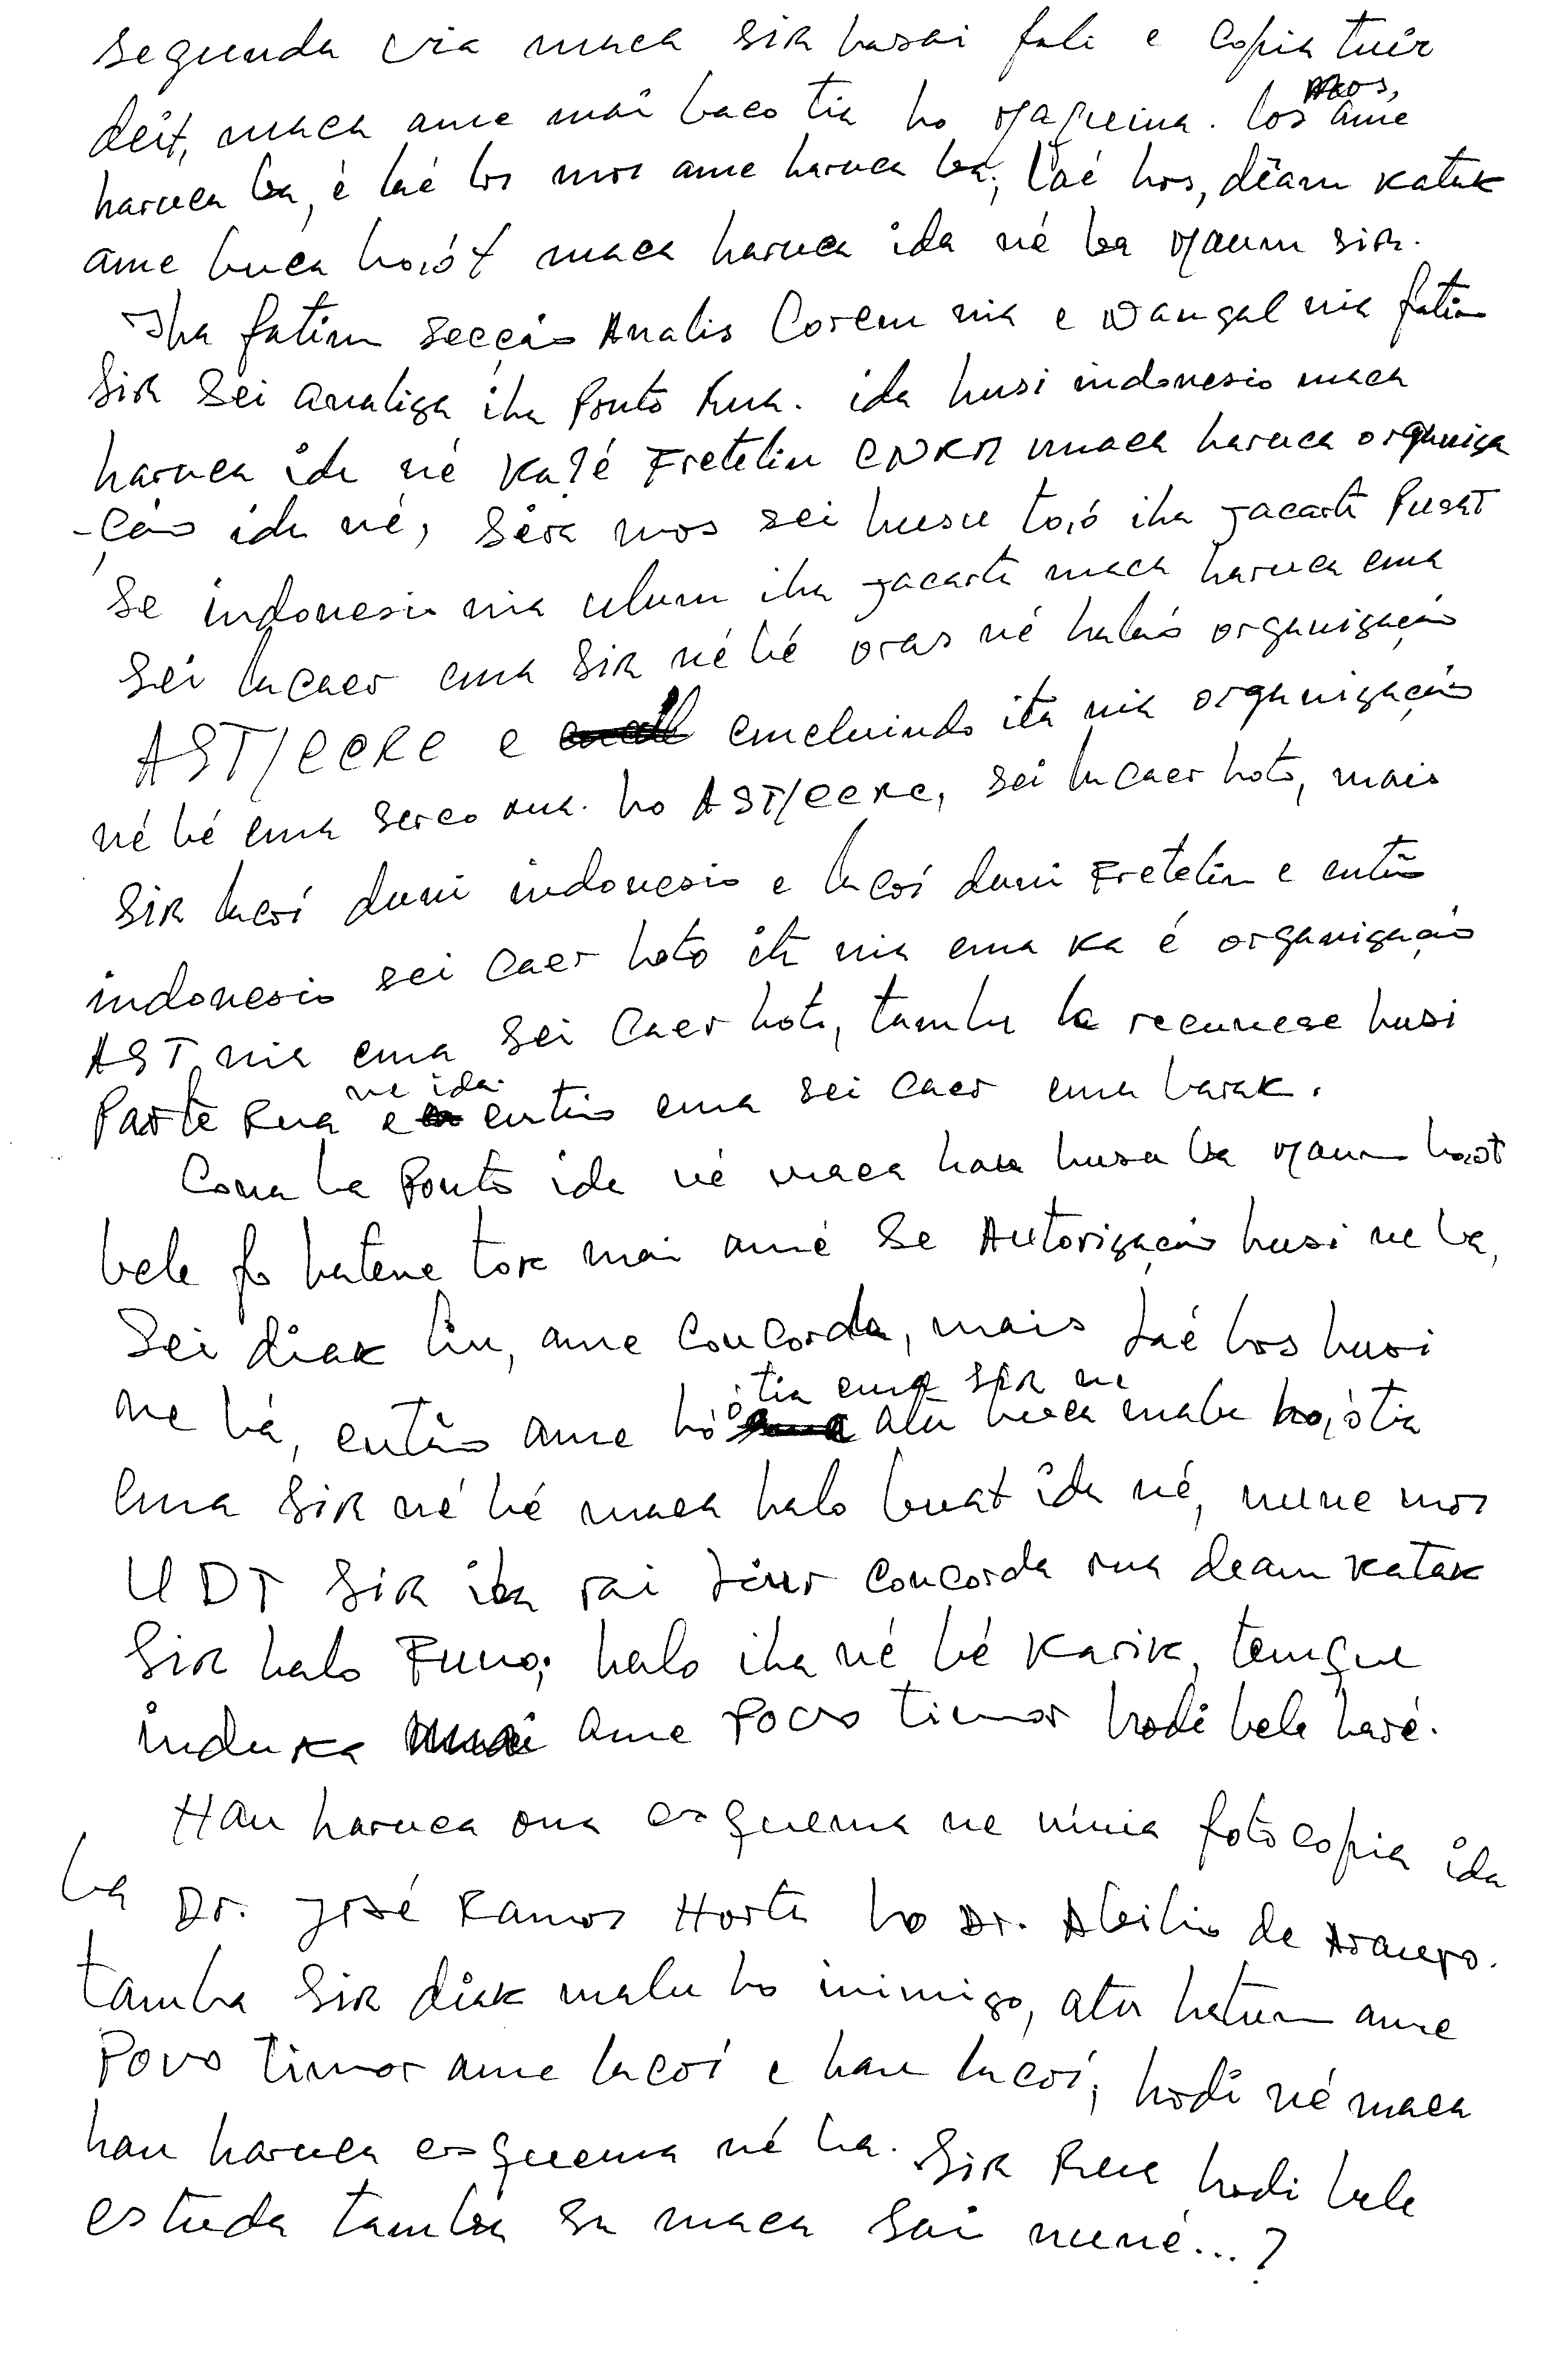 segunda via maca sira hasai fali e copia tuir
deit, maca ame mai baco tia ho maquina. los mos, ame
haruca ba, é laé los mos ame haruca ba; laé los, déam katak
ame buca hoiót maca haruca ida né ba maun sira.
Iha fatim secção Analis Corem nia e Wangal nia fatim
sira sei analiza iha ponto rua. ida husi indonesio maca
haruca ida né ka?é Fretelin CNRM maca haruca organiza
-ção ida né, sira mos sei husu to,ó iha jacarta Pusat
se indonesio nia ulum iha jacarta maca haruca ema
sei lacaer ema sira né bé oras né halao organização
AST/CCRC e emcluindo ita nia organização
né bé ema serco rua. ho AST/CCRC, sei lacaer hoto, mais
sira lacoí duni indonesio e lacoí duni Fretelin e então
indonesio sei caer hoto ita nia ema ka é organização
AST nia ema sei caer hoto, tamba la recunese husi
parte rua ne ida. e então ema sei caer ema barak.
Cona ba ponto ida né maca hau husu ba maun hoiot
bele fo hatene tok mai amé se Autorização husi ne ba,
sei diak liu, ame concorda, mais laé los husi
ne bá, então ame hó ótia ema sira ne atu buca malu ho,ótia
ema sira né bé maca halo buat ida né, nune mos
UDT sira iha rai liur concorda rua deam katak
sira halo Funo; halo iha né bé karik, temque
induka ame povo timor hodi bele haré.
Hau haruca ona esquema ne ninia fotocopia ida
ba Dr. José Ramos Horta ho Dr. Abilio de Araujo.
tamba sira diak malu ho inimigo, atu hatun ame
povo timor ame lacoí e hau lacoí; hodi né maca
hau haruca esquema né ba. sira rua hodi bele
estuda tamba sa maca sai nuné...?